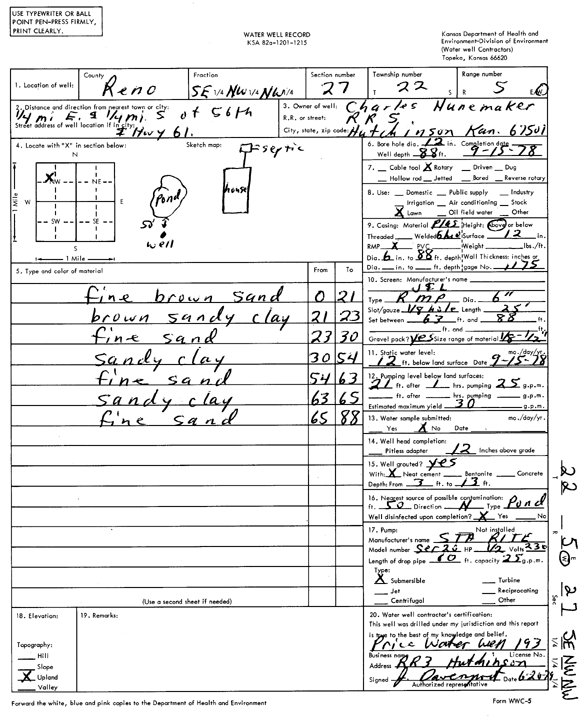 USE TYPEWRITER OR BALL
POINT PEN-PRESS FIRMLY,
PRINT CLEARLY.
WATER WELL RECORD
KSA 82a-1201-1215
Kansas Department of Health and
Environment-Division of Environment
(Water well Contractors)
Topeka, Kansas 66620
1. Location of well:
County
Reno
Fraction
SE 1/4 NW 1/4 NW 1/4
Section number
27
Township number
T 22 S
Range number
R 5 E/W
2. Distance and direction from nearest town or city:
1/4 mi E. & 1/4 mi S of 56th
Street address of well location if in city:
& Hwy 61.
3. Owner of well: Charles Hunemaker
R.R. or street: RR 5
City, state, zip code: Hutchinson Kan. 67501
4. Locate with "X" in section below:
N
1 Mile
W
NW
NE
E
SW
SE
S
1 Mile
X
Sketch map:
septic
house
Pond
50'
well
6. Bore hole dia. 12 in. Completion date
Well depth 88 ft. 9-15-78
7. Cable tool X Rotary Driven Dug
Hollow rod Jetted Bored Reverse rotary
8. Use: Domestic Public supply Industry
Irrigation Air conditioning Stock
X Lawn Oil field water Other
9. Casing: Material Plas Height: Above or below
Threaded Welded Surface 12 in.
RMP X PVC Weight lbs./ft.
Dia. 6 in. to 88 ft. depth Wall Thickness: inches or
Dia. in. to ft. depth gage No. .175
5. Type and color of material
From
To
fine brown sand 0 21
brown sandy clay 21 23
fine sand 23 30
sandy clay 30 54
fine sand 54 63
sandy clay 63 65
fine sand 65 88
(Use a second sheet if needed)
10. Screen: Manufacturer's name
Type RMP Dia. 6"
Slot/gauze 1/8 hole Length 25'
Set between 63 ft. and 88 ft.
ft. and ft.
Gravel pack? yes Size range of material 1/8-1/2"
11. Static water level: mo./day/yr.
12 ft. below land surface Date 9-15-78
12. Pumping level below land surfaces:
21 ft. after 1 hrs. pumping 25 g.p.m.
ft. after hrs. pumping g.p.m.
Estimated maximum yield 30 g.p.m.
13. Water sample submitted: mo./day/yr.
Yes X No Date
14. Well head completion:
Pitless adapter 12 Inches above grade
15. Well grouted? yes
With: X Neat cement Bentonite Concrete
Depth: From 3 ft. to 13 ft.
16. Nearest source of possible contamination:
ft. 50 Direction N Type Pond
Well disinfected upon completion? X Yes No
17. Pump: Not installed
Manufacturer's name STA RITE
Model number Ser 20 HP 1/2 Volts 230
Length of drop pipe 60 ft. capacity 25 g.p.m.
Type:
X Submersible Turbine
Jet Reciprocating
Centrifugal Other
18. Elevation:
Topography:
Hill
Slope
X Upland
Valley
19. Remarks:
20. Water well contractor's certification:
This well was drilled under my jurisdiction and this report
is true to the best of my knowledge and belief.
Price Water Well 193
Business name License No.
Address RR3 Hutchinson
Signed J. Davenport Date
Authorized representative
Forward the white, blue and pink copies to the Department of Health and Environment
Form WWC-5
T 22 R 5 E W Sec 27 1/4 1/4 1/4 SE NW NW